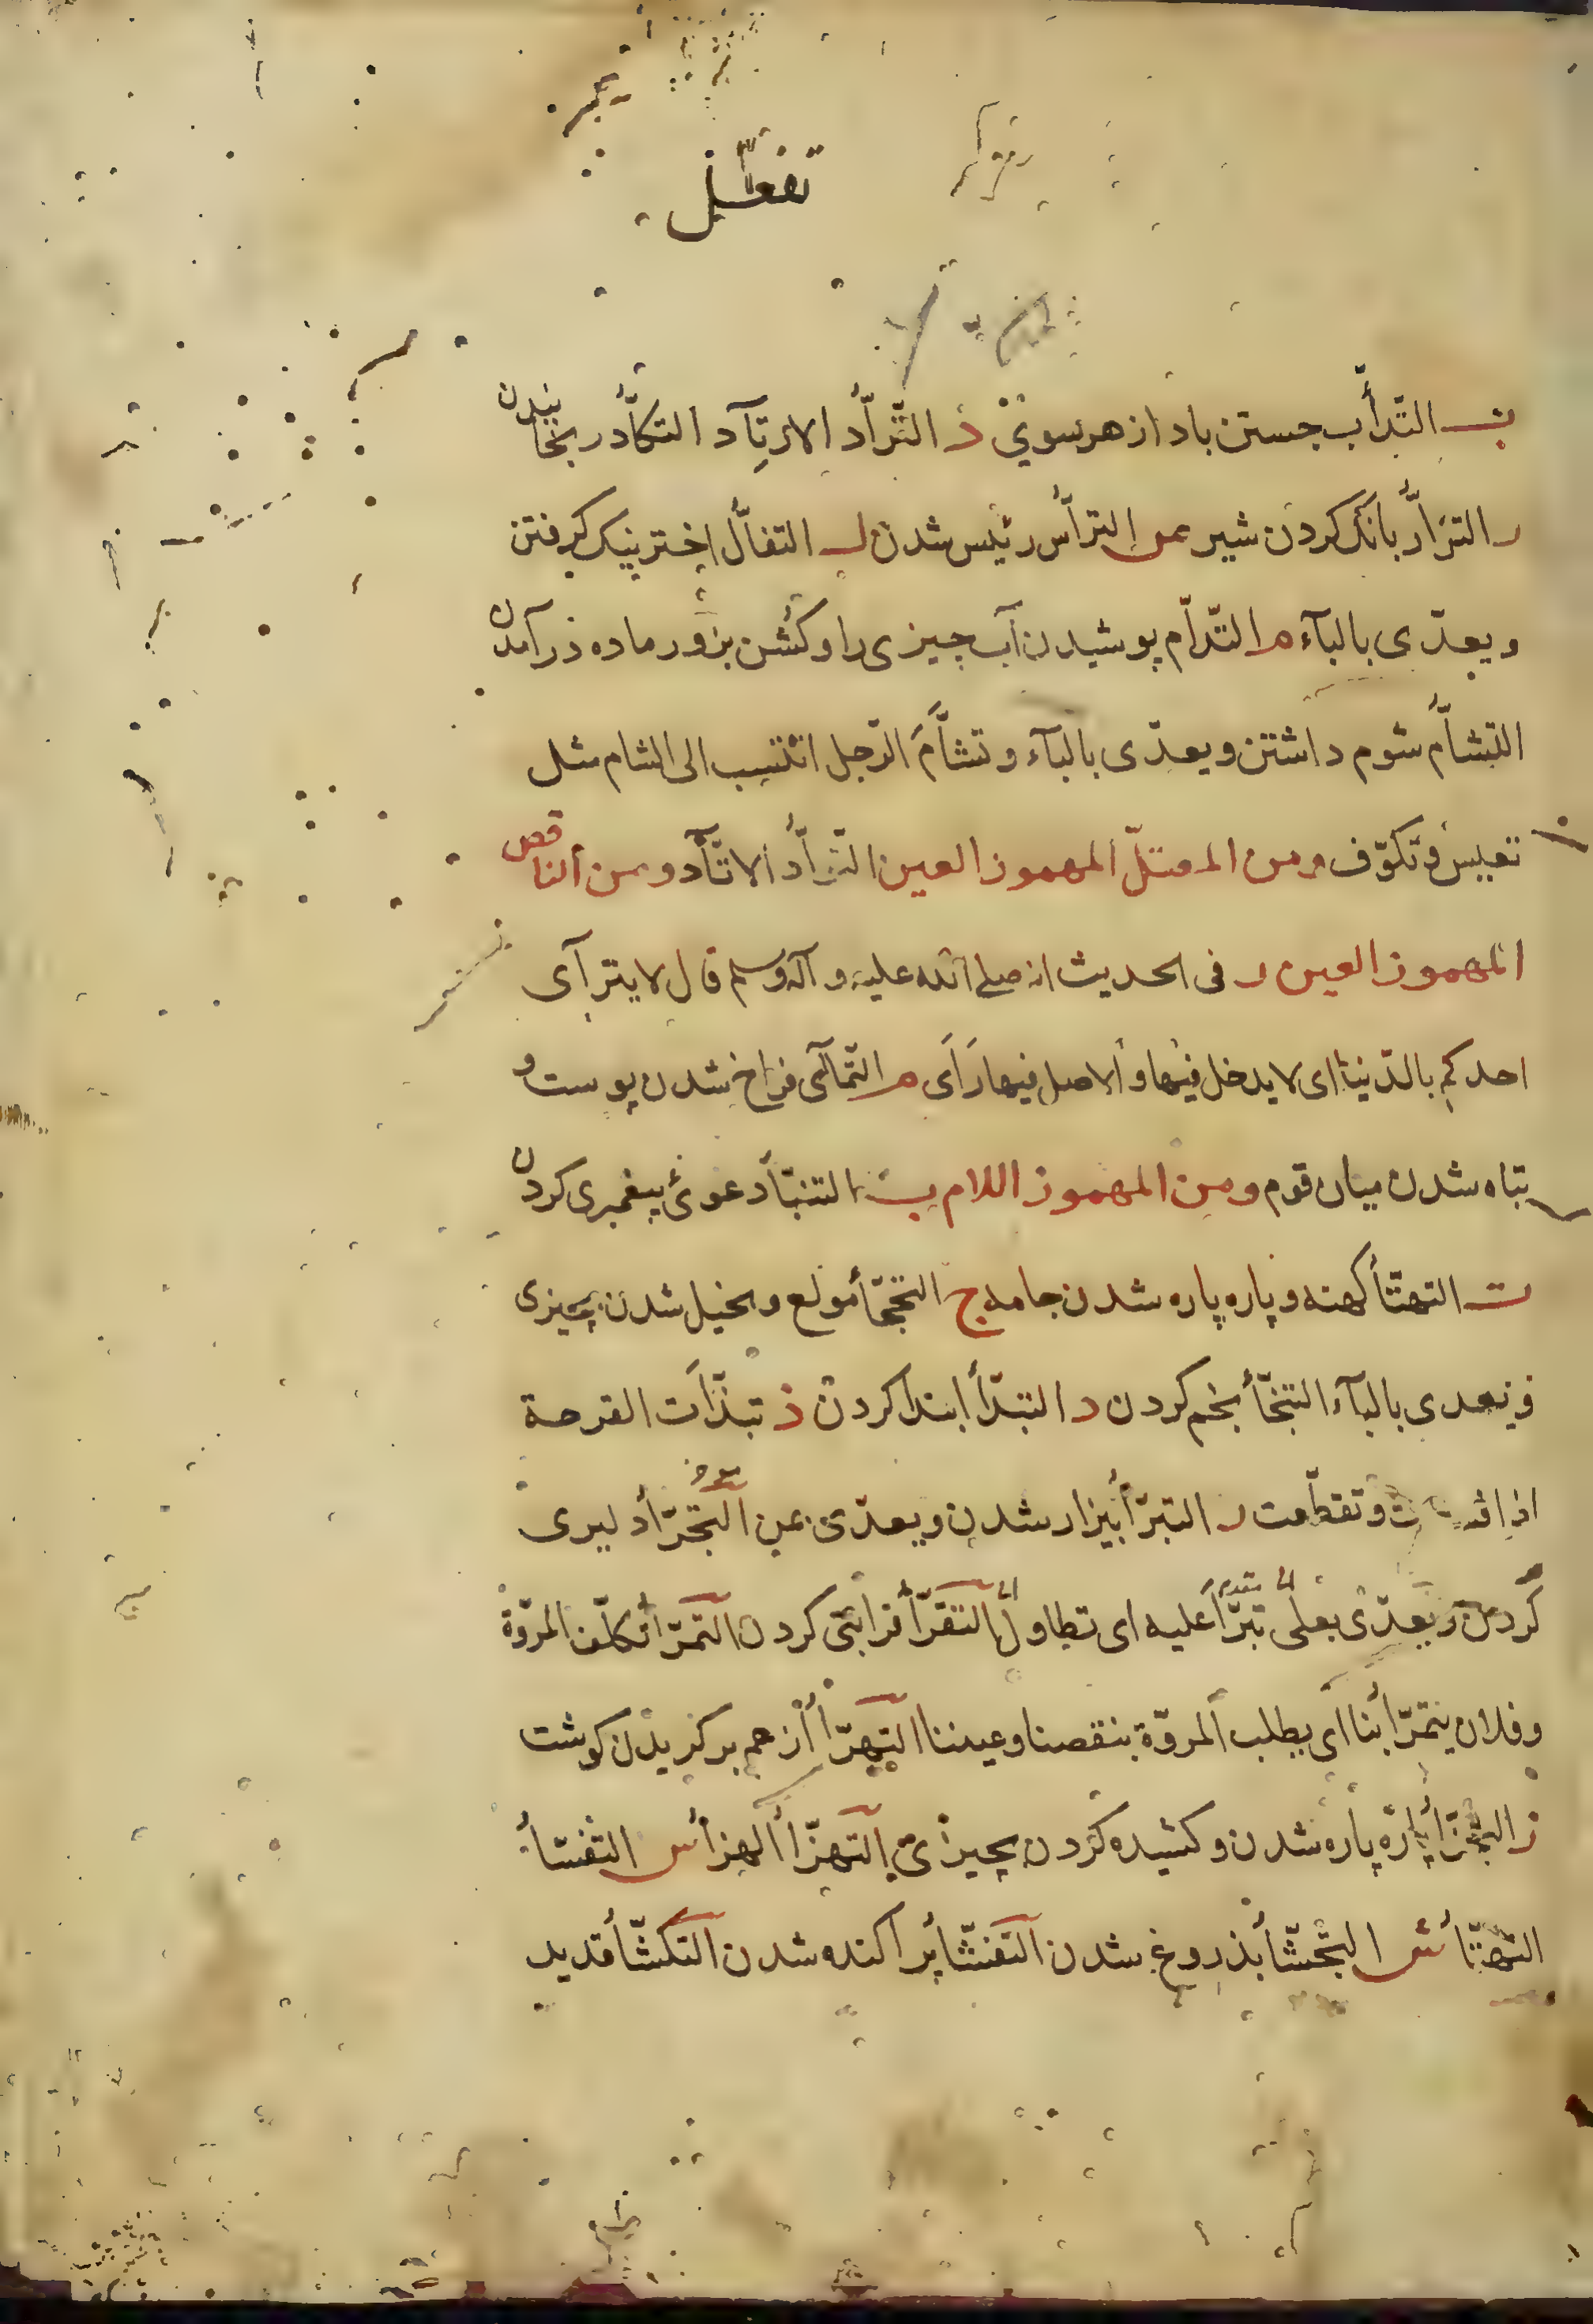 تفعّل
ب التذأّب جستن باد از هر سوئی د الترأّد الارتآد التكأّد رنجانیدن
ر التزأّر بانک کردن شیر س الترأّس رئیس شدن ل التفأّل اختر نیک کرفتن
و یعدّی بالبآء م التدأّم پوشیدن آب چیزی را و کشن بزور ماده در آمدن
التشأّم شوم داشتن و یعدّی بالبآء و تشأّم الرّجل انتسب الی الشام مثل
تقیّس و تکوّف و من المعتلّ المهموز العین التوأّد الاتّآد و من الناقص
المهموز العین ر فی الحدیث انه صلی الله علیه و آله و سلم قال لا یترآی
احدکم بالدّنیا ای لا یدخل فیها و الاصل فیها رَأَی م التمأّی فراخ شدن پوست و
تباه شدن میان قوم و من المهموز اللام ب التنبّأ دعوی پیغمبری کردن
ت التهتّأ کهنه و پاره پاره شدن جامه ج التحجّأ مولع و بخیل شدن بچیزی
و یعدی بالبآء التبدّأ ابتدا کردن ذ تبذّأت القرحة
اذا و تقطّعت ر التبرّأ بیزار شدن و یعدّی بمن التجرّأ دلیری
کردن و یعدّی بعلی علیه ای تطاول التقرّأ قرائی کردن التمرّأ تکلّف المروّة
و فلان یتمرّأ بنا ای یطلب المروّة بنقصنا و عیبنا التهرّأ از هم بر کزیدن کوشت
ز التجزّأ پاره پاره شدن و کشیده کردن بچیزی التهزّأ الهزأ س التفسّأ
التهتّأ ش التجشّأ بذ روغ شدن التفشّأ پراکنده شدن التکشّأ قدید